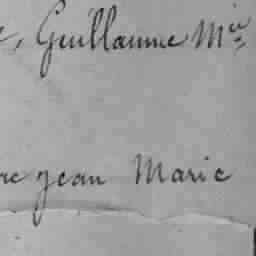 , Guillaume Mie
re jean Marie